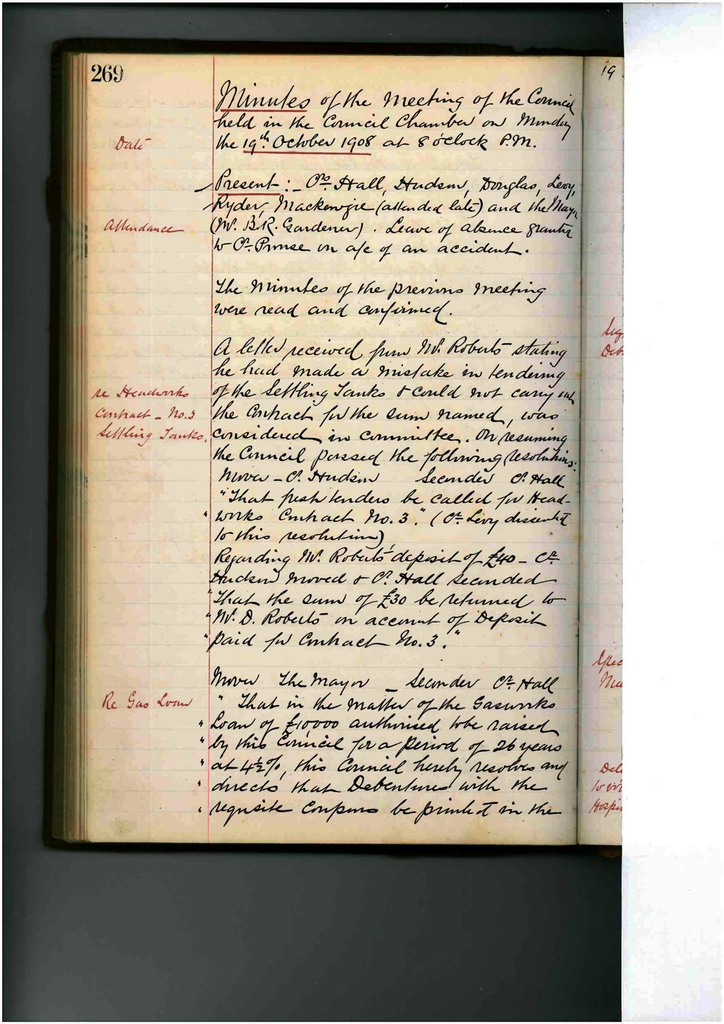 269
19
Minutes of the Meeting of the Council
held in the Council Chamber on Monday
Date
the 19th October 1908 at 8 o'clock P.M.
Present:- Crs Hall, Hudson, Douglas, Levy,
Ryder, Mackenzie (attended late) and the Mayor
Attendance
(Mr. B.R. Gardener). Leave of absence granted
to Cr. Prouse on a/c of an accident.
The Minutes of the previous Meeting
were read and confirmed.
A letter received from Mr. Roberts stating
he had made a mistake in tendering
re Headworks
of the Settling Tanks & could not carry out
Contract - No. 3
the Contract for the sum named, was
Settling Tanks.
considered in committee. On resuming
the Council passed the following resolutions:
Mover - Cr. Hudson Seconder Cr. Hall
"That fresh tenders be called for Head-
" works Contract No. 3." (Cr. Levy dissented
to this resolution)
Regarding Mr. Roberts' deposit of £40 - Cr.
Hudson moved & Cr. Hall seconded
"That the sum of £30 be returned to
" Mr. D. Roberts on account of Deposit
" paid for Contract No. 3."
Mover The Mayor - Seconder Cr. Hall
Re Gas Loan
" That in the matter of the Gasworks
" Loan of £10000 authorised to be raised
" by this Council for a period of 26 years
" at 4½%, this Council hereby resolves and
" directs that Debentures with the
" requisite Coupons be printed in the